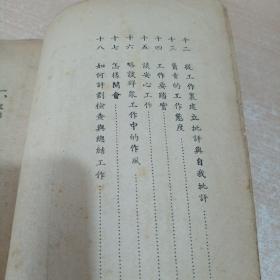 十二 從工作裏建立批評與自我批評
十三 負責的工作態度
十四 工作要踏實
十五 談安心工作
十六 略談群眾工作中的作風
十七 怎樣開會
十八 如何計劃檢查與總結工作
一、